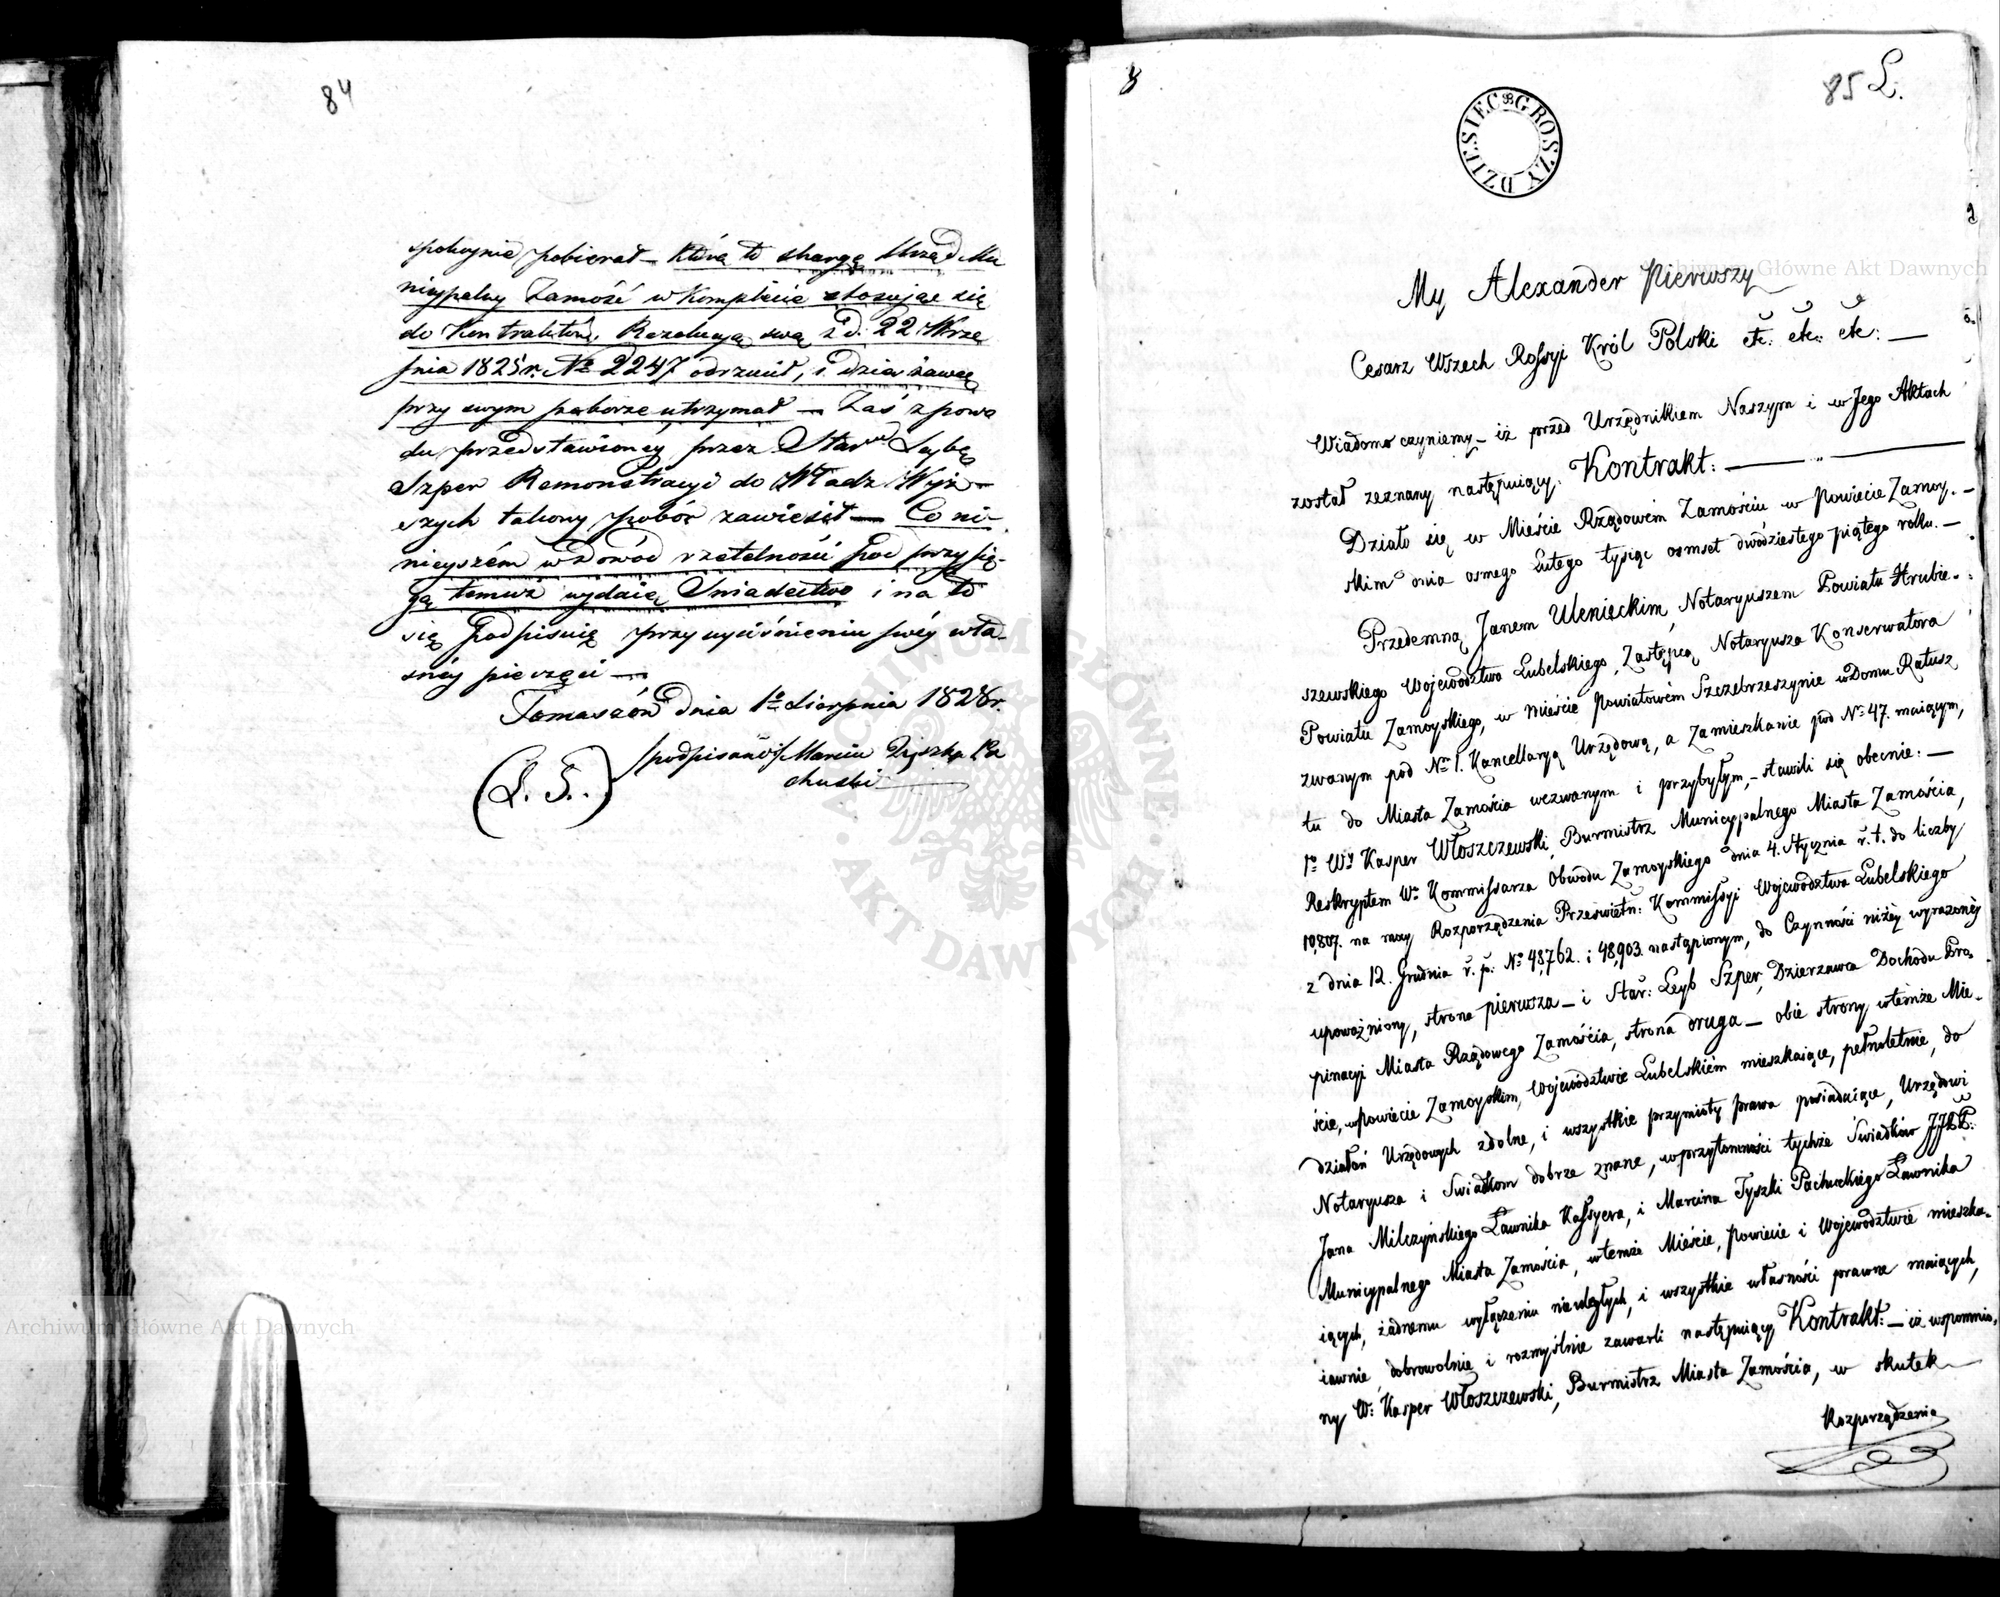 84
spokoynie pobierał – którą to skargę Urząd Mu
nicypalny Zamość w Komplecie stosując się
do Kontraktów, Rezolucyą swą z d: 22 Wrze
śnia 1825r. No 2247 odrzucił, i Dzierżawcę
przy swym poborze utrzymał – Zaś z powo
du przedstawioney przez Star Leybę
Szper Remonstracyi do Władz Wyż–
szych takowy pobór zawiesił – Co ni–
nieyszém w Dowód rzetelności pod przysię–
gą temuż wydaię Świadectwo i na to
się podpisuię przy wyciśnieniu swéy wła–
snéy pieczęci –
Tomaszów Dnia 1o Sierpnia 1828r.
(L. S.) /podpisano/ Marcin Tyszka Pa
chucki
85 L.
DZIESIĘC GROSZY
My Alexander Pierwszy
Cesarz Wszech Rossyi Król Polski etc: etc: etc: —
Wiadomo czyniemy – iż przed Urzędnikiem Naszym i w Jego Aktach
został zeznany następuiący. Kontrakt: — „ —
Działo się w Mieście Rządowém Zamościu w Powiecie Zamoy. –
skim dnia osmego Lutego tysiąc osmset dwódziestego piątego roku. –
Przedemną Janem Ulenieckim, Notaryuszem Powiatu Hrubie–
szewskiego Województwa Lubelskiego, Zastępcą Notaryusza Konserwatora
Powiatu Zamoyskiego, w mieście Powiatowém Szczebrzeszynie w Domu Ratusz
zwanym pod Nr 1. Kancellaryą Urzędową, a Zamieszkanie pod No 47. maiącym,
tu do Miasta Zamościa wezwanym i przybyłym, – stawili się obecnie: —
1o Wy Kasper Włoszczewski, Burmistrz Municypalnego Miasta Zamościa,
Reskryptem Wo Kommissarza Obwodu Zamoyskiego dnia 4. Stycznia r. t. do liczby
10,807. na mocy Rozporządzenia Prześwietn: Kommissyi Województwa Lubelskiego
z dnia 12. Grudnia r. p: No 48,762. i 48,903. nastąpionym, do Czynności niżéy wyrażonéy
upoważniony, strona pierwsza – i Star: Leyb Szper, Dzierżawca Dochodu Pro–
pinacyi Miasta Rządowego Zamościa, strona druga – obie strony w temże Mie–
ście, w Powiecie Zamoyskim, Województwie Lubelskiém mieszkaiące, pełnoletnie, do
działań Urzędowych zdolne, i wszystkie przymioty prawa posiadaiące, Urzędowi
Notaryusza i Świadkom dobrze znane, w przytomności tychże Świadków JJPP:
Jana Milczyńskiego Ławnika Kassyera, i Marcina Tyszki Pachuckiego Ławnika
Municypalnego Miasta Zamościa, w temże Mieście, Powiecie i Województwie mieszka–
iących, żadnemu wyłączeniu nieuległych, i wszystkie własności prawne maiących,
iawnie, dobrowolnie i rozmyślnie zawarli następuiący Kontrakt: – iż wspomnio–
ny W: Kasper Włoszczewski, Burmistrz Miasta Zamościa, w skutek
Rozporządzenia
Archiwum Główne Akt Dawnych
Archiwum Główne Akt Dawnych
ARCHIWUM GŁÓWNE · AKT DAWNYCH ·